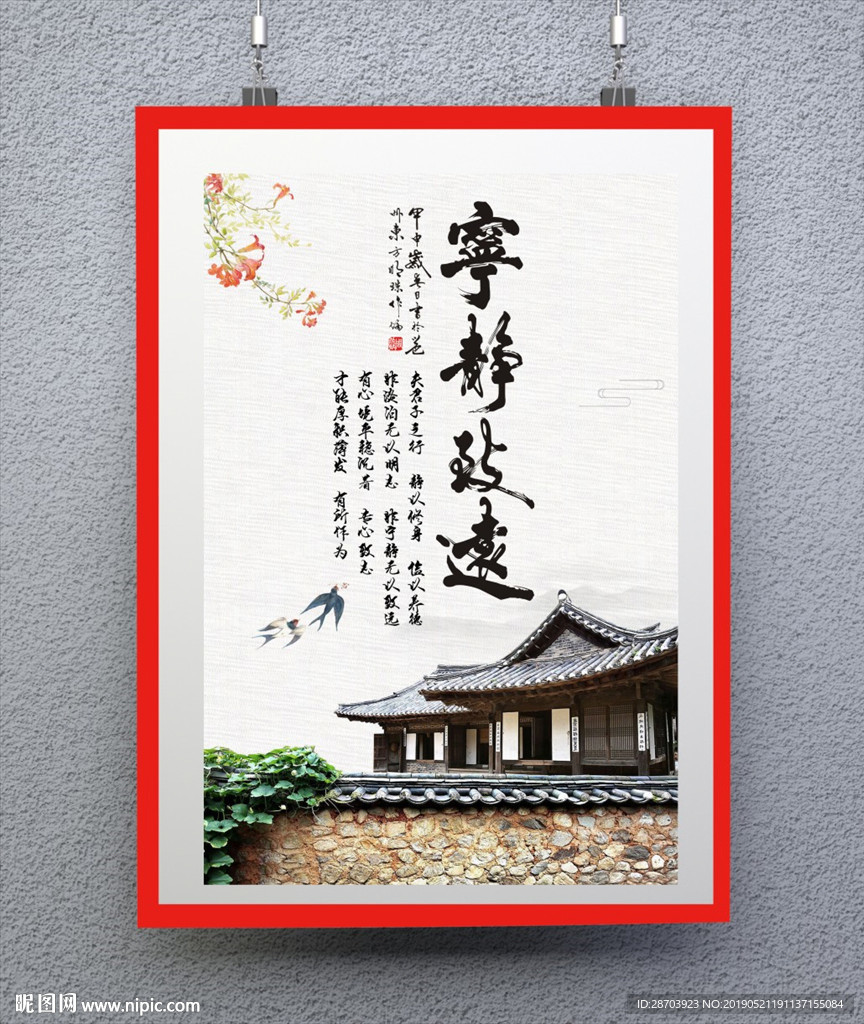 寧靜致遠
甲申歲
州東方明珠作偏
夫君子之行 靜以修身 儉以养德
非淡泊无以明志 非宁静无以致远
有心境平稳沉着 专心致志
才能厚积薄发 有所作为
昵图网 www.nipic.com
ID:28703923 NO:20190521191137155084